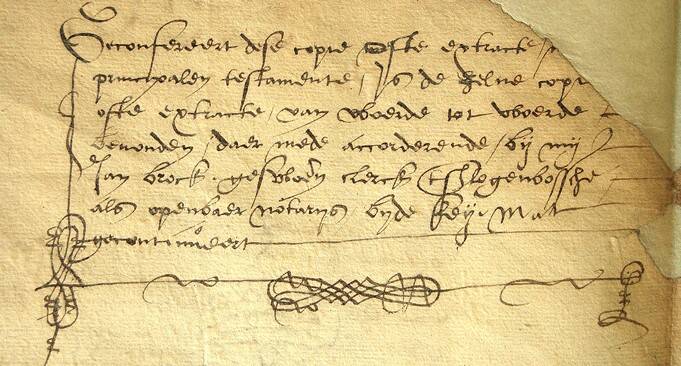 Geconfereert dese copie ofte extracte
principalen testamente / Is de zelue copi
ofte extracte / van woerde tot woerde
beuonden / daer mede accorderende / by mij
Jan brock gesworen clerck Tshogenbossche
als openbaer notarijs byde Key. Mat
gecontinueert